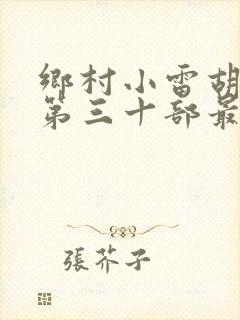 鄉村小雷胡
第三十部最
張芥子